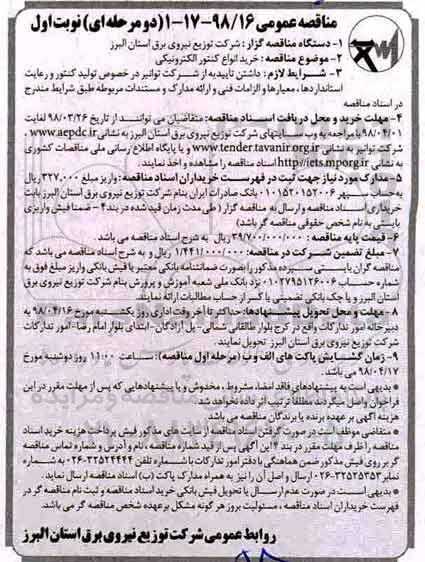 مناقصه عمومی ۹۸/۱۶-۱۷-۱ (دو مرحله ای) نوبت اول
۱- دستگاه مناقصه گزار: شرکت توزیع نیروی برق استان البرز
۲- موضوع مناقصه: خرید انواع کنتور الکترونیکی
۳- شرایط لازم: داشتن تاییدیه از شرکت توانیر در خصوص تولید کنتور و رعایت
استانداردها، معیارها و الزامات فنی و ارائه مدارک و مستندات مربوطه طبق شرایط مندرج
در اسناد مناقصه
۴- مهلت خرید و محل دریافت اسناد مناقصه: متقاضیان می توانند از تاریخ ۹۸/۰۳/۲۶ لغایت
۹۸/۰۴/۰۱ با مراجعه به وب سایتهای شرکت توزیع نیروی برق استان البرز به نشانی www.aepdc.ir،
شرکت توانیر به نشانی www.tender.tavanir.org.ir و یا پایگاه اطلاع رسانی ملی مناقصات کشوری
به نشانی http://iets.mporg.ir اسناد مناقصه را مشاهده و اخذ نمایند.
۵- مدارک مورد نیاز جهت ثبت در فهرست خریداران اسناد مناقصه: واریز مبلغ ۳۲۷,۰۰۰ ریال
به حساب سپهر ۰۱۰۱۵۲۰۱۵۲۰۰۶ بانک صادرات ایران بنام شرکت توزیع نیروی برق استان البرز بابت
خریداری اسناد مناقصه و ارسال به مناقصه گزار (طی مدت زمان قید شده در بند ۴ - ضمنا فیش واریزی
بایستی به نام شخص حقوقی مناقصه گر باشد)
۶- قیمت پایه مناقصه: ۳۹/۷۰۰/۰۰۰/۰۰۰ ریال به شرح اسناد مناقصه می باشد.
۷- مبلغ تضمین شرکت در مناقصه: ۱/۴۴۱/۰۰۰/۰۰۰ ریال و به شرح اسناد مناقصه می باشد که
مناقصه گران بایستی سپرده مذکور را بصورت ضمانتنامه بانکی معتبر یا فیش بانکی واریز مبلغ فوق به
شماره حساب ۰۱۰۲۷۹۵۱۲۶۰۰۶ نزد بانک ملی شعبه آموزش و پرورش بنام شرکت توزیع نیروی برق
استان البرز و یا چک بانکی تضمینی یا کسر از حساب مطالبات ارائه نمایند.
۸- مهلت و محل تحویل پیشنهادها: حداکثر تا آخر وقت اداری روز یکشنبه مورخ ۹۸/۰۴/۱۶ به
دبیرخانه امور تدارکات واقع در کرج بلوار طالقانی شمالی- پل آزادگان- ابتدای بلوار امام رضا- امور تدارکات
شرکت توزیع نیروی برق استان البرز تحویل نمایند.
۹- زمان گشایش پاکت های الف و ب (مرحله اول مناقصه): ساعت ۱۱:۰۰ روز دوشنبه مورخ
۹۸/۰۴/۱۷ می باشد.
* بدیهی است به پیشنهادهای فاقد امضا، مشروط، مخدوش و یا پیشنهادهایی که پس از مهلت مقرر در این
فراخوان واصل میگردد مطلقا ترتیب اثر داده نخواهد شد.
هزینه آگهی بر عهده برنده یا برندگان مناقصه می باشد.
* متقاضی موظف است در صورت گرفتن اسناد مناقصه از سایت های مذکور فیش پرداخت هزینه خرید اسناد
مناقصه را ظرف مهلت مقرر در بند ۴ این آگهی پس از قید شماره مناقصه، نام و آدرس و شماره تماس مناقصه
گر بر روی فیش مذکور ضمن هماهنگی با دفتر امور تدارکات با شماره تلفن ۳۲۵۲۴۴۴۴-۰۲۶ به شماره
نمابر ۳۲۵۲۵۳۵۳-۰۲۶ ارسال و اصل آن را نیز به همراه مدارک پاکت (ب) اسناد مناقصه ارسال نمایند.
* بدیهی است در صورت عدم ارسال یا تحویل فیش بانکی خرید اسناد مناقصه و ثبت نام مناقصه گر در
فهرست خریداران اسناد مناقصه، مسئولیت بروز هر گونه مشکل بر عهده شخص مناقصه گر می باشد.
روابط عمومی شرکت توزیع نیروی برق استان البرز